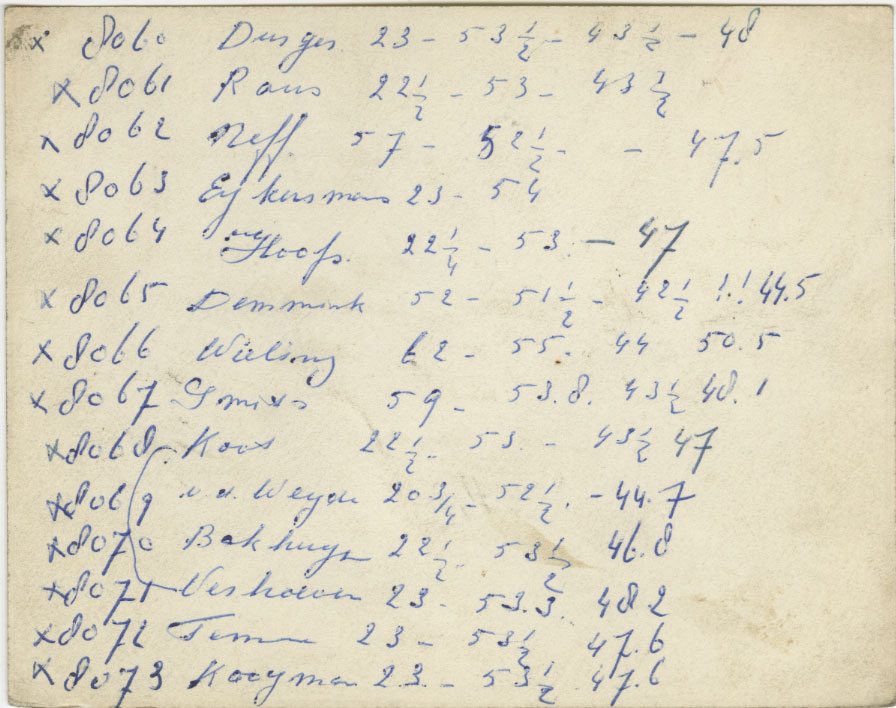 x 8060 Durges 23 - 53 1/2 - 43 1/2 - 48
x 8061 Raus 22 1/2 - 53 - 43 1/2
x 8062 Neff. 57 - 52 1/2 - - 47.5
x 8063 Eijkersmans 23 - 54
x 8064 Hoofs. 22 1/4 - 53 - 47
x 8065 Demmink 52 - 51 1/2 - 42 1/2 !.! 44.5
x 8066 Wieling 62 - 55. 44 50.5
x 8067 Smits 59 - 53.8. 43 1/2 48.1
x 8068 Koos 22 1/2 - 53. - 43 1/2 47
x 8069 v.d. Weyde 20 3/4 - 52 1/2. - 44.7
x 8070 Bakhuys 22 1/2. 53 1/2 46.8
x 8071 Verhoeven 23 - 53.3. 48.2
x 8072 23 - 53 1/2 47.6
x 8073 Kooyman 23. - 53 1/2 47.6